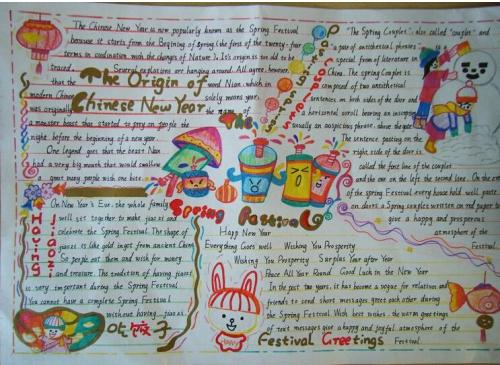 The Chinese New Year is now popularly known as the Spring Festival
because it starts from the Begining of Spring (the first of the twenty-four
terms in coodination with the changes of Nature). It's origin is too old to be
traced. Several explanations are hanging around. All agree, however,
that the word Nian, which in
modern Chinese solely means year,
was originally the name of
a monster beast that started to prey on people the
night before the beginning of a new year.
One legend goes that the beast Nian
had a very big mouth that would swallow
a great many people with one bite.
The Origin of
Chinese New Year
On New Year's Eve, the whole family
will sit together to make jiaozi and
celebrate the Spring Festival. The shape of
jiaozi is like gold ingot from ancient China.
So people eat them and wish for money
and treasure. The tradition of having jiaozi
is very important during the Spring Festival
You cannot have a complete Spring Festival
without having jiaozi.
Having
Jiaozi
吃饺子
The
Spring Festival
Happy New Year
Everything Goes well Wishing You Prosperity
Wishing You Prosperity Surplus Year After Year
Peace All Year Round Good Luck in the New Year
In the past two years, it has become a vogue for relatives and
friends to send short messages greet each other during
the Spring Festival. With best wishes, the warm greetings
of text messages give a happy and joyful atmosphere of the
Festival.
Festival Greetings
"The Spring Couplets", also called "couplet" and
a pair of antithetical phrases, is a
special form of literature in
China. The spring Couplets is
composed of two antithetical
sentences on both sides of the door and
a horizontal scroll bearing an inscription,
usually an auspicious phrase, above the gate
The sentence pasting on the
right side of the door is
called the first line of the couplets
and the one on the left the second line. On the eve
of the spring Festival, every household will paste
on doors a Spring couplets written on red paper to
give a happy and prosperous
atmosphere of the
Festival.